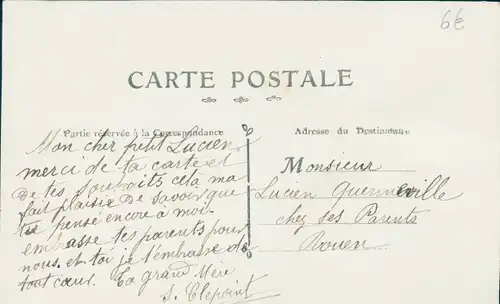 6€
CARTE POSTALE
Partie réservée à la Correspondance
Mon cher petit Lucien
merci de ta carte et
de tes souhaits cela ma
fait plaisir de savoir que
tu pense encore à moi.
embrasse tes parents pour
nous. et toi je t'embrasse de
tout cœur. Ta grand Mère
Adresse du Destinataire
Monsieur
Lucien
chez ses Parents
Rouen